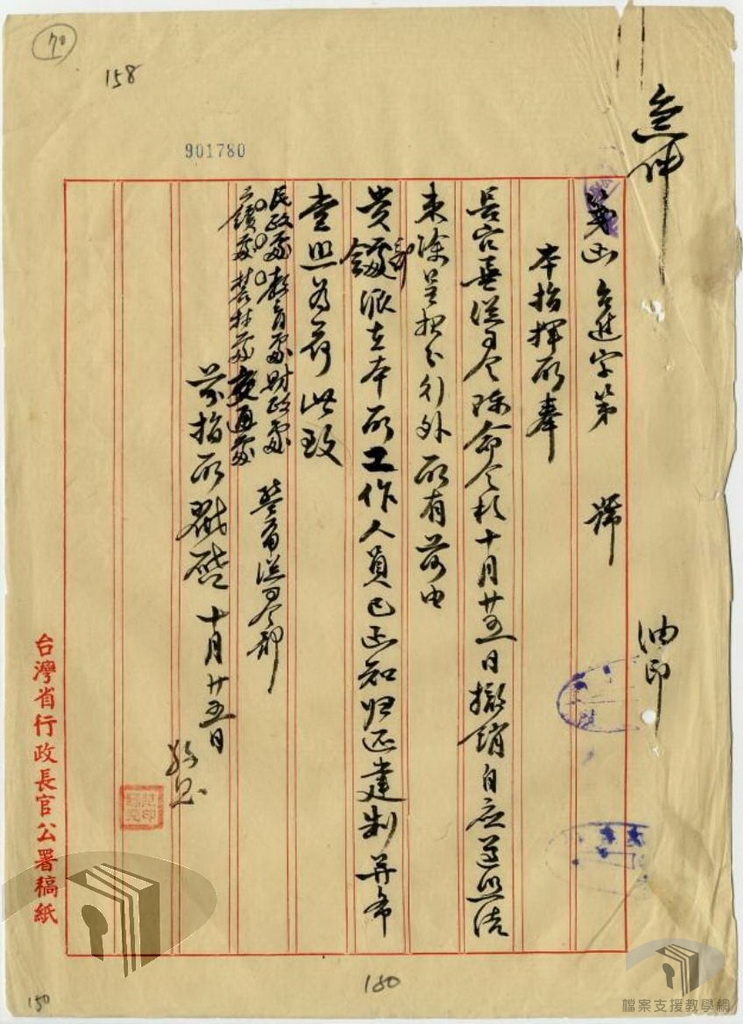 70
158
901780
急件 油印
箋函 台進字第 號
本指揮所奉
長官兼總司令陳命令於十月廿五日撤銷自應遵照結
束除呈報分行外所有前由
貴處部派在本所工作人員已函知归还建制并希
查照為荷此致
民政處 教育處 財政處 警備總司令部
工礦處 農林處 交通處
前指所戳啟 十月廿五日
台灣省行政長官公署稿紙
180
150
檔案支援教學網